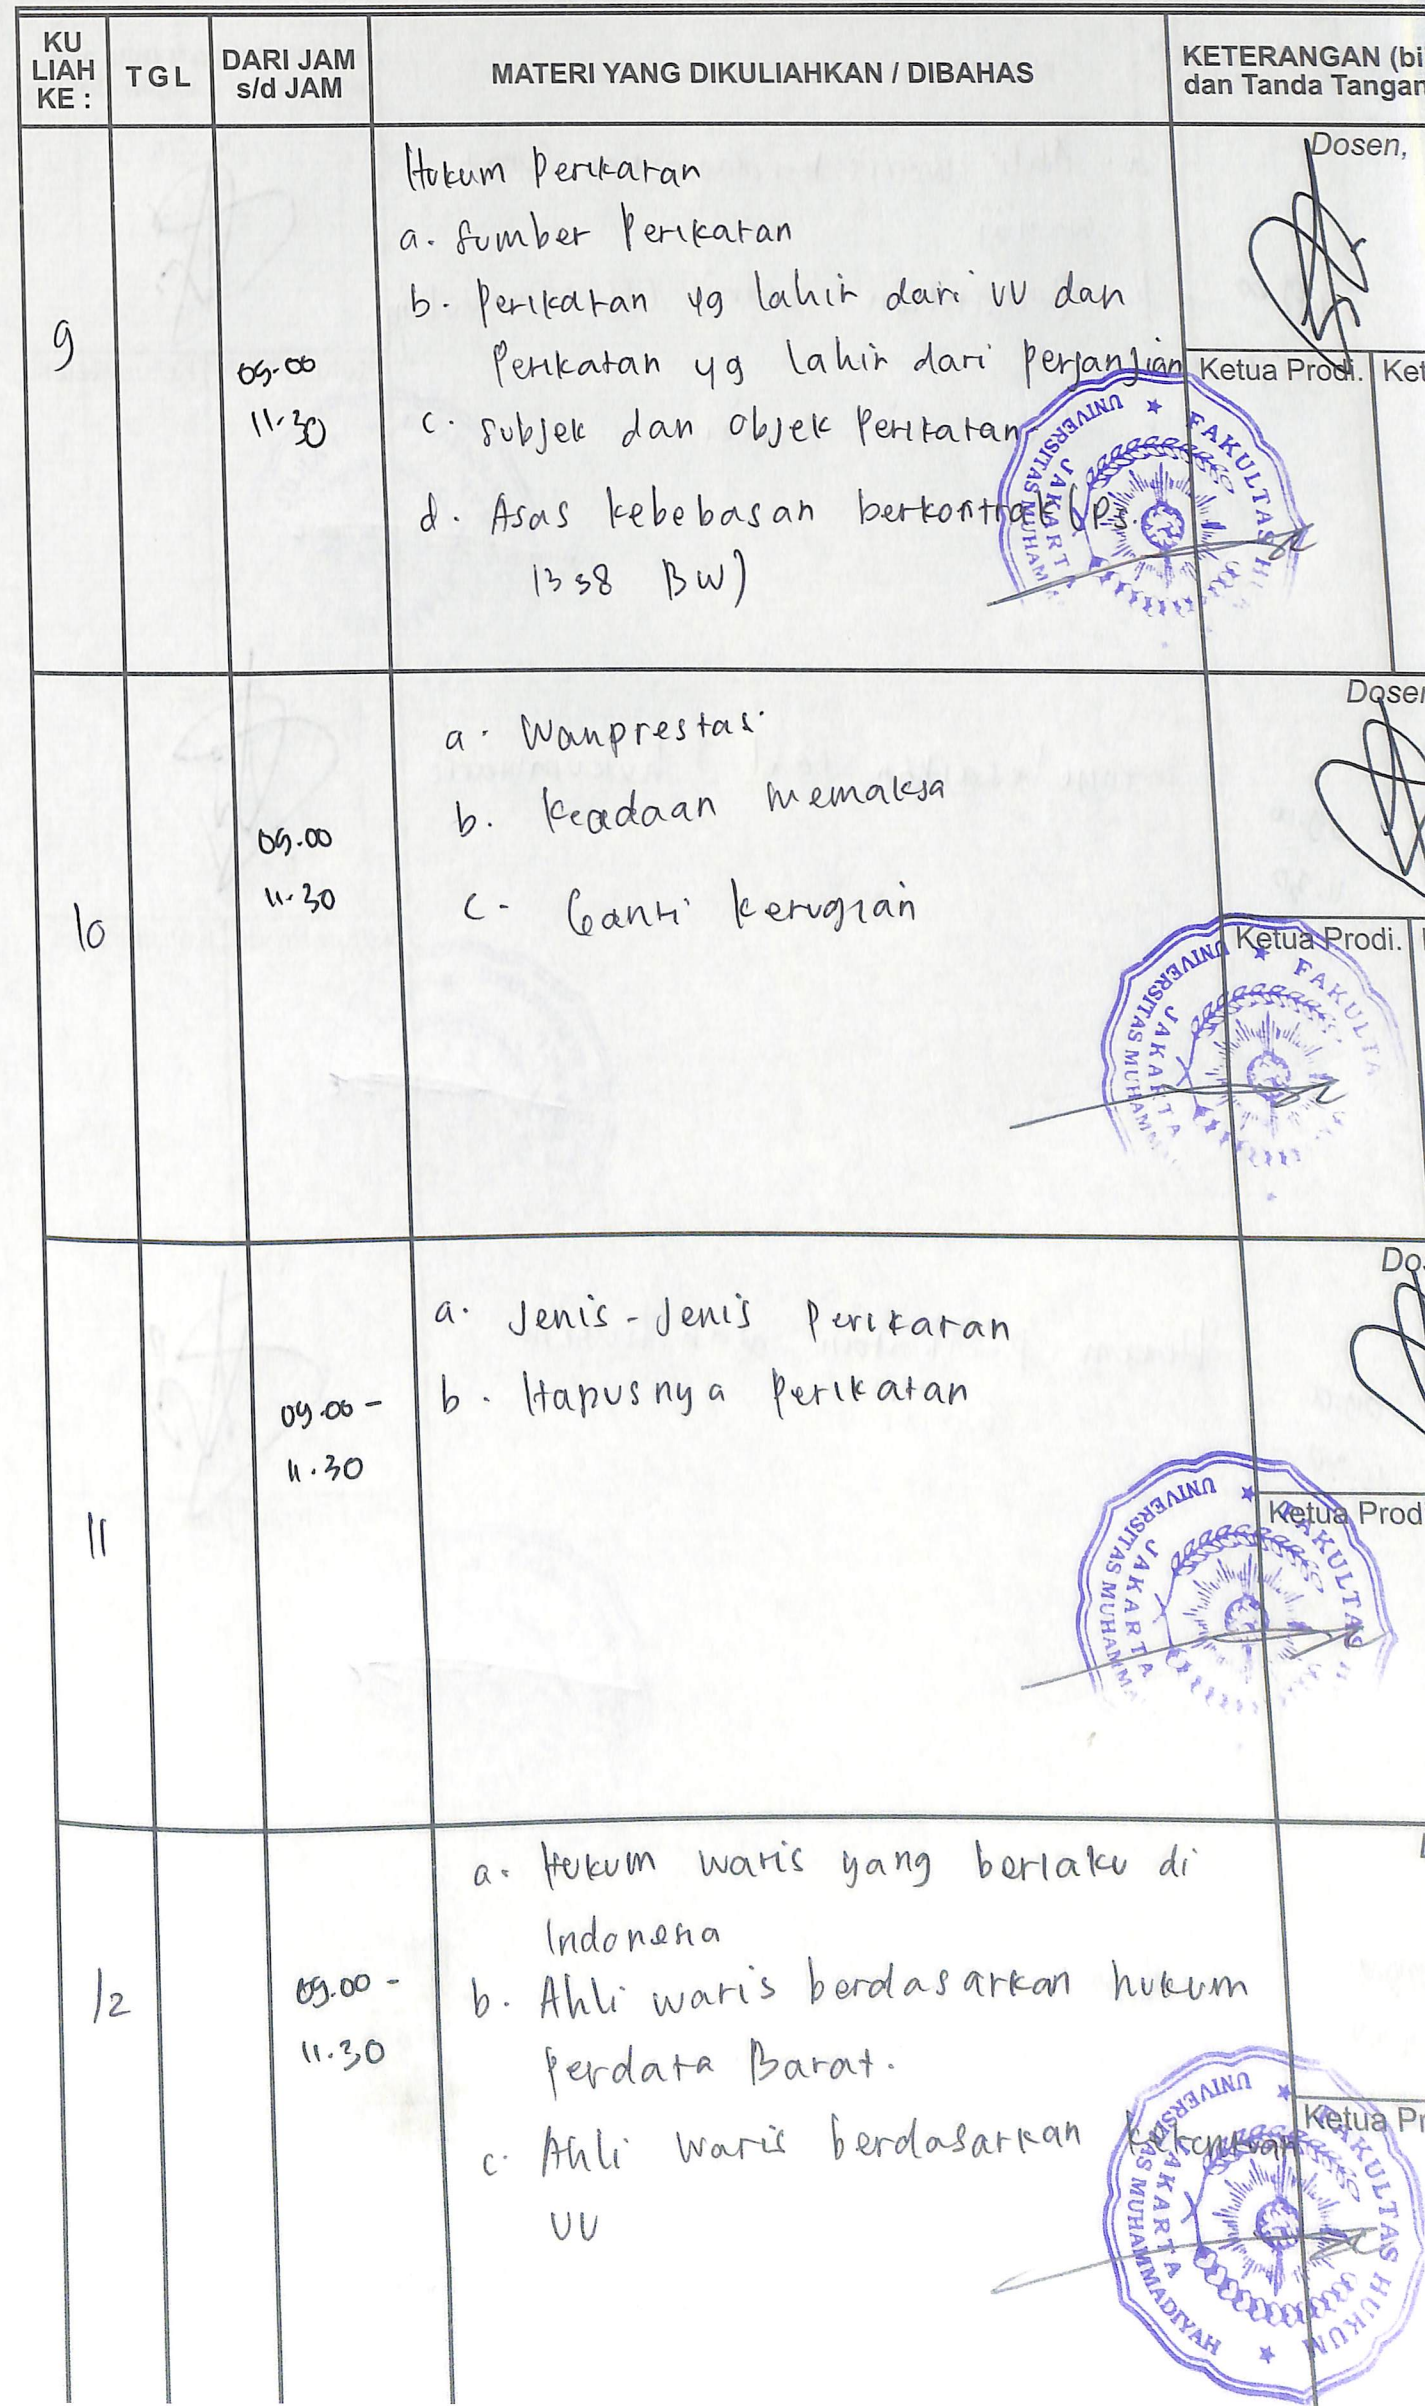 KU
LIAH
KE :
TGL
DARI JAM
s/d JAM
MATERI YANG DIKULIAHKAN / DIBAHAS
KETERANGAN (bi
dan Tanda Tangan
9
09.00
11.30
Hukum Perikatan
a. Sumber Perikatan
b. Perikatan yg lahir dari UU dan
Perikatan yg lahir dari perjanjian
c. Subjek dan objek Perikatan
d. Asas kebebasan berkontrak (Ps.
1338 BW)
Dosen,
Ketua Prodi.
Ket
UNIVERSITAS MUHAM
JAKARTA
FAKULTAS HU
10
09.00
11.30
a. Wanprestasi
b. Keadaan memaksa
c. Ganti kerugian
Dosen
Ketua Prodi.
UNIVERSITAS MUHAMM
JAKARTA
FAKULTA
11
09.00 -
11.30
a. Jenis-Jenis Perikatan
b. Hapusnya Perikatan
Dos
Ketua Prod
UNIVERSITAS MUHAMMA
JAKARTA
FAKULTAS H
12
09.00 -
11.30
a. Hukum waris yang berlaku di
Indonesia
b. Ahli waris berdasarkan hukum
Perdata Barat.
c. Ahli waris berdasarkan ketentuan
UU
Ketua Pr
UNIVERSITAS MUHAMMADIYAH
JAKARTA
FAKULTAS HUKUM